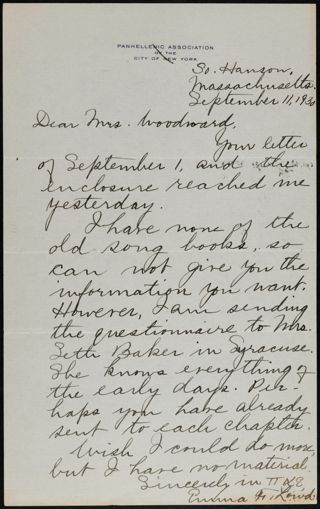 PANHELLENIC ASSOCIATION
OF THE
CITY OF NEW YORK
So. Hanson,
Massachusetts.
September 11, 1930
Dear Mrs. Woodward,
Your letter
of September 1, and the
enclosure reached me
yesterday.
I have none of the
old song books, so
can not give you the
information you want.
However, I am sending
the questionnaire to Mrs.
Seth Baker in Syracuse.
She knows everything of
the early days. Per-
haps you have already
sent to each chapter.
Wish I could do more,
but I have no material.
Sincerely in
Emma F. Lowd